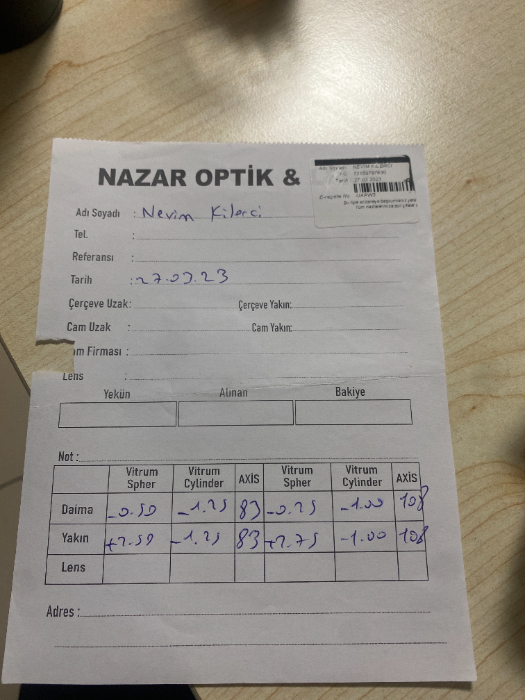 NAZAR OPTİK &
Adı Soyadı : Nevim Kilerci
Tel. :
Referansı :
Tarih : 27.07.23
Çerçeve Uzak: Çerçeve Yakın:
Cam Uzak : Cam Yakın:
m Firması :
Lens :
Yekün Alınan Bakiye
Not :
Vitrum Spher Vitrum Cylinder AXİS Vitrum Spher Vitrum Cylinder AXİS
Daima -0.50 -1.25 83 -0.25 -1.00 108
Yakın +2.50 -1.25 83 +2.75 -1.00 108
Lens
Adres :